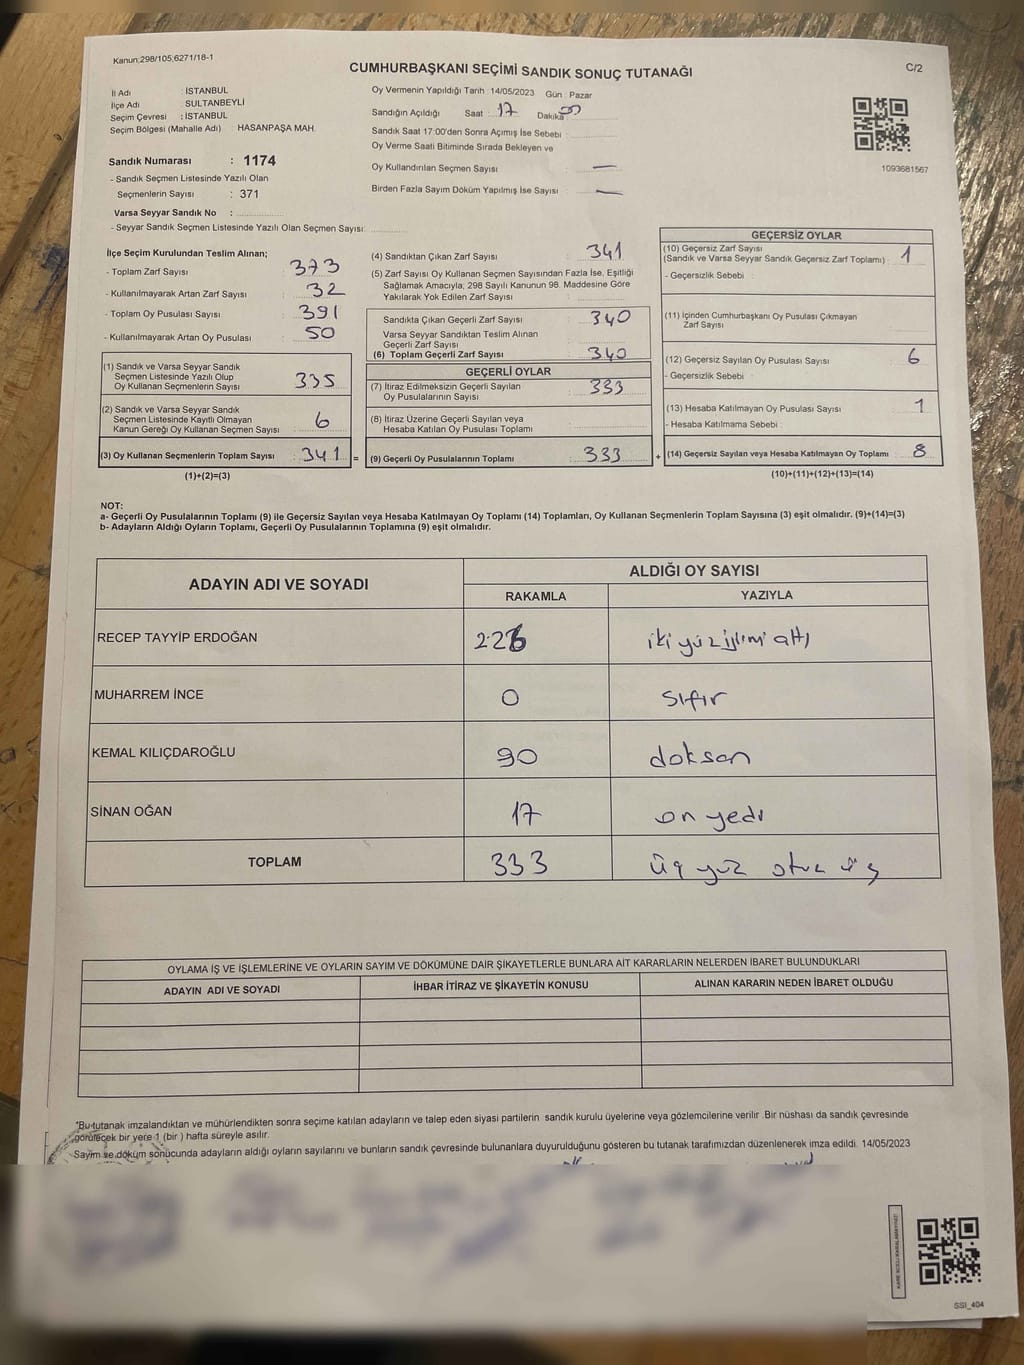 Kanun;298/105;6271/18-1
CUMHURBAŞKANI SEÇİMİ SANDIK SONUÇ TUTANAĞI
C/2
İl Adı : İSTANBUL
İlçe Adı : SULTANBEYLİ
Seçim Çevresi : İSTANBUL
Seçim Bölgesi (Mahalle Adı) : HASANPAŞA MAH.
Sandık Numarası : 1174
- Sandık Seçmen Listesinde Yazılı Olan
Seçmenlerin Sayısı : 371
Varsa Seyyar Sandık No :
- Seyyar Sandık Seçmen Listesinde Yazılı Olan Seçmen Sayısı:
Oy Vermenin Yapıldığı Tarih : 14/05/2023 Gün : Pazar
Sandığın Açıldığı Saat : 17 Dakika
Sandık Saat 17:00'den Sonra Açımış İse Sebebi :
Oy Verme Saati Bitiminde Sırada Bekleyen ve
Oy Kullandırılan Seçmen Sayısı : —
Birden Fazla Sayım Döküm Yapılmış İse Sayısı : —
1093681567
İlçe Seçim Kurulundan Teslim Alınan;
- Toplam Zarf Sayısı : 373
- Kullanılmayarak Artan Zarf Sayısı : 32
- Toplam Oy Pusulası Sayısı : 391
- Kullanılmayarak Artan Oy Pusulası : 50
(1) Sandık ve Varsa Seyyar Sandık
Seçmen Listesinde Yazılı Olup
Oy Kullanan Seçmenlerin Sayısı : 335
(2) Sandık ve Varsa Seyyar Sandık
Seçmen Listesinde Kayıtlı Olmayan
Kanun Gereği Oy Kullanan Seçmen Sayısı : 6
(3) Oy Kullanan Seçmenlerin Toplam Sayısı : 341 =
(1)+(2)=(3)
(4) Sandıktan Çıkan Zarf Sayısı : 341
(5) Zarf Sayısı Oy Kullanan Seçmen Sayısından Fazla İse, Eşitliği
Sağlamak Amacıyla, 298 Sayılı Kanunun 98. Maddesine Göre
Yakılarak Yok Edilen Zarf Sayısı :
Sandıkta Çıkan Geçerli Zarf Sayısı : 340
Varsa Seyyar Sandıktan Teslim Alınan
Geçerli Zarf Sayısı :
(6) Toplam Geçerli Zarf Sayısı : 340
GEÇERLİ OYLAR
(7) İtiraz Edilmeksizin Geçerli Sayılan
Oy Pusulalarının Sayısı : 333
(8) İtiraz Üzerine Geçerli Sayılan veya
Hesaba Katılan Oy Pusulası Toplamı :
(9) Geçerli Oy Pusulalarının Toplamı : 333 +
GEÇERSİZ OYLAR
(10) Geçersiz Zarf Sayısı
(Sandık ve Varsa Seyyar Sandık Geçersiz Zarf Toplamı) : 1
- Geçersizlik Sebebi :
(11) İçinden Cumhurbaşkanı Oy Pusulası Çıkmayan
Zarf Sayısı
(12) Geçersiz Sayılan Oy Pusulası Sayısı : 6
- Geçersizlik Sebebi :
(13) Hesaba Katılmayan Oy Pusulası Sayısı : 1
- Hesaba Katılmama Sebebi :
(14) Geçersiz Sayılan veya Hesaba Katılmayan Oy Toplamı : 8
(10)+(11)+(12)+(13)=(14)
NOT:
a- Geçerli Oy Pusulalarının Toplamı (9) ile Geçersiz Sayılan veya Hesaba Katılmayan Oy Toplamı (14) Toplamları, Oy Kullanan Seçmenlerin Toplam Sayısına (3) eşit olmalıdır. (9)+(14)=(3)
b- Adayların Aldığı Oyların Toplamı, Geçerli Oy Pusulalarının Toplamına (9) eşit olmalıdır.
ADAYIN ADI VE SOYADI
ALDIĞI OY SAYISI
RAKAMLA YAZIYLA
RECEP TAYYİP ERDOĞAN 226 iki yüz yirmi altı
MUHARREM İNCE 0 sıfır
KEMAL KILIÇDAROĞLU 90 doksan
SİNAN OĞAN 17 on yedi
TOPLAM 333 üç yüz otuz üç
OYLAMA İŞ VE İŞLEMLERİNE VE OYLARIN SAYIM VE DÖKÜMÜNE DAİR ŞİKAYETLERLE BUNLARA AİT KARARLARIN NELERDEN İBARET BULUNDUKLARI
ADAYIN ADI VE SOYADI İHBAR İTİRAZ VE ŞİKAYETİN KONUSU ALINAN KARARIN NEDEN İBARET OLDUĞU
"Bu tutanak imzalandıktan ve mühürlendikten sonra seçime katılan adayların ve talep eden siyasi partilerin sandık kurulu üyelerine veya gözlemcilerine verilir. Bir nüshası da sandık çevresinde
görülecek bir yere 1 (bir) hafta süreyle asılır.
Sayım ve döküm sonucunda adayların aldığı oyların sayılarını ve bunların sandık çevresinde bulunanlara duyurulduğunu gösteren bu tutanak tarafımızdan düzenlenerek imza edildi. 14/05/2023
SSI_404